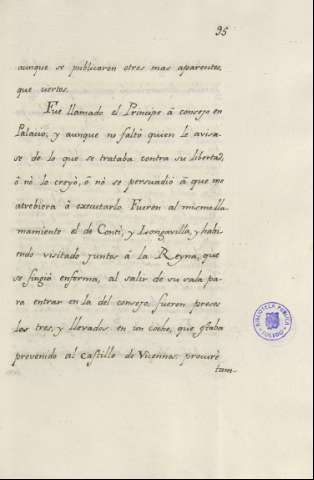 95
aunque se publicaron otras mas aparentes,
que ciertas.
Fue llamado el Principe â consejo en
Palacio, y aunque no faltò quien le avisa-
se de lo que se trataba contra su libertad,
ô nò lo creyò, ô nò se persuadiò â que me
atrebiera â executarlo. Fueron al mismo lla-
mamiento el de Conti, y Longavilla, y habi-
endo visitado juntos â la Reyna, que
se fingiò enferma, al salir de su sala pa-
ra entrar en la del consejo, fueron presos
los tres, y llevados en un coche, que estaba
prevenido al Castillo de Vicennas: procurè
tam-
BIBLIOTECA PUBLICA
TOLEDO